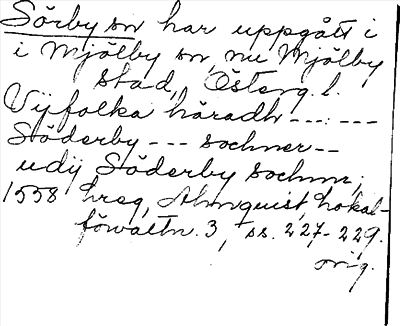 Sörby sn har uppgått i
i Mjölby sn, nu Mjölby
stad, Österg. l.
Vijfolka häradh --- : ---
Söderby --- sochner --
udij Söderby sochnn;
1558 hreg, Almquist, Lokal-
förvaltn. 3, ss. 227-229.
orig.